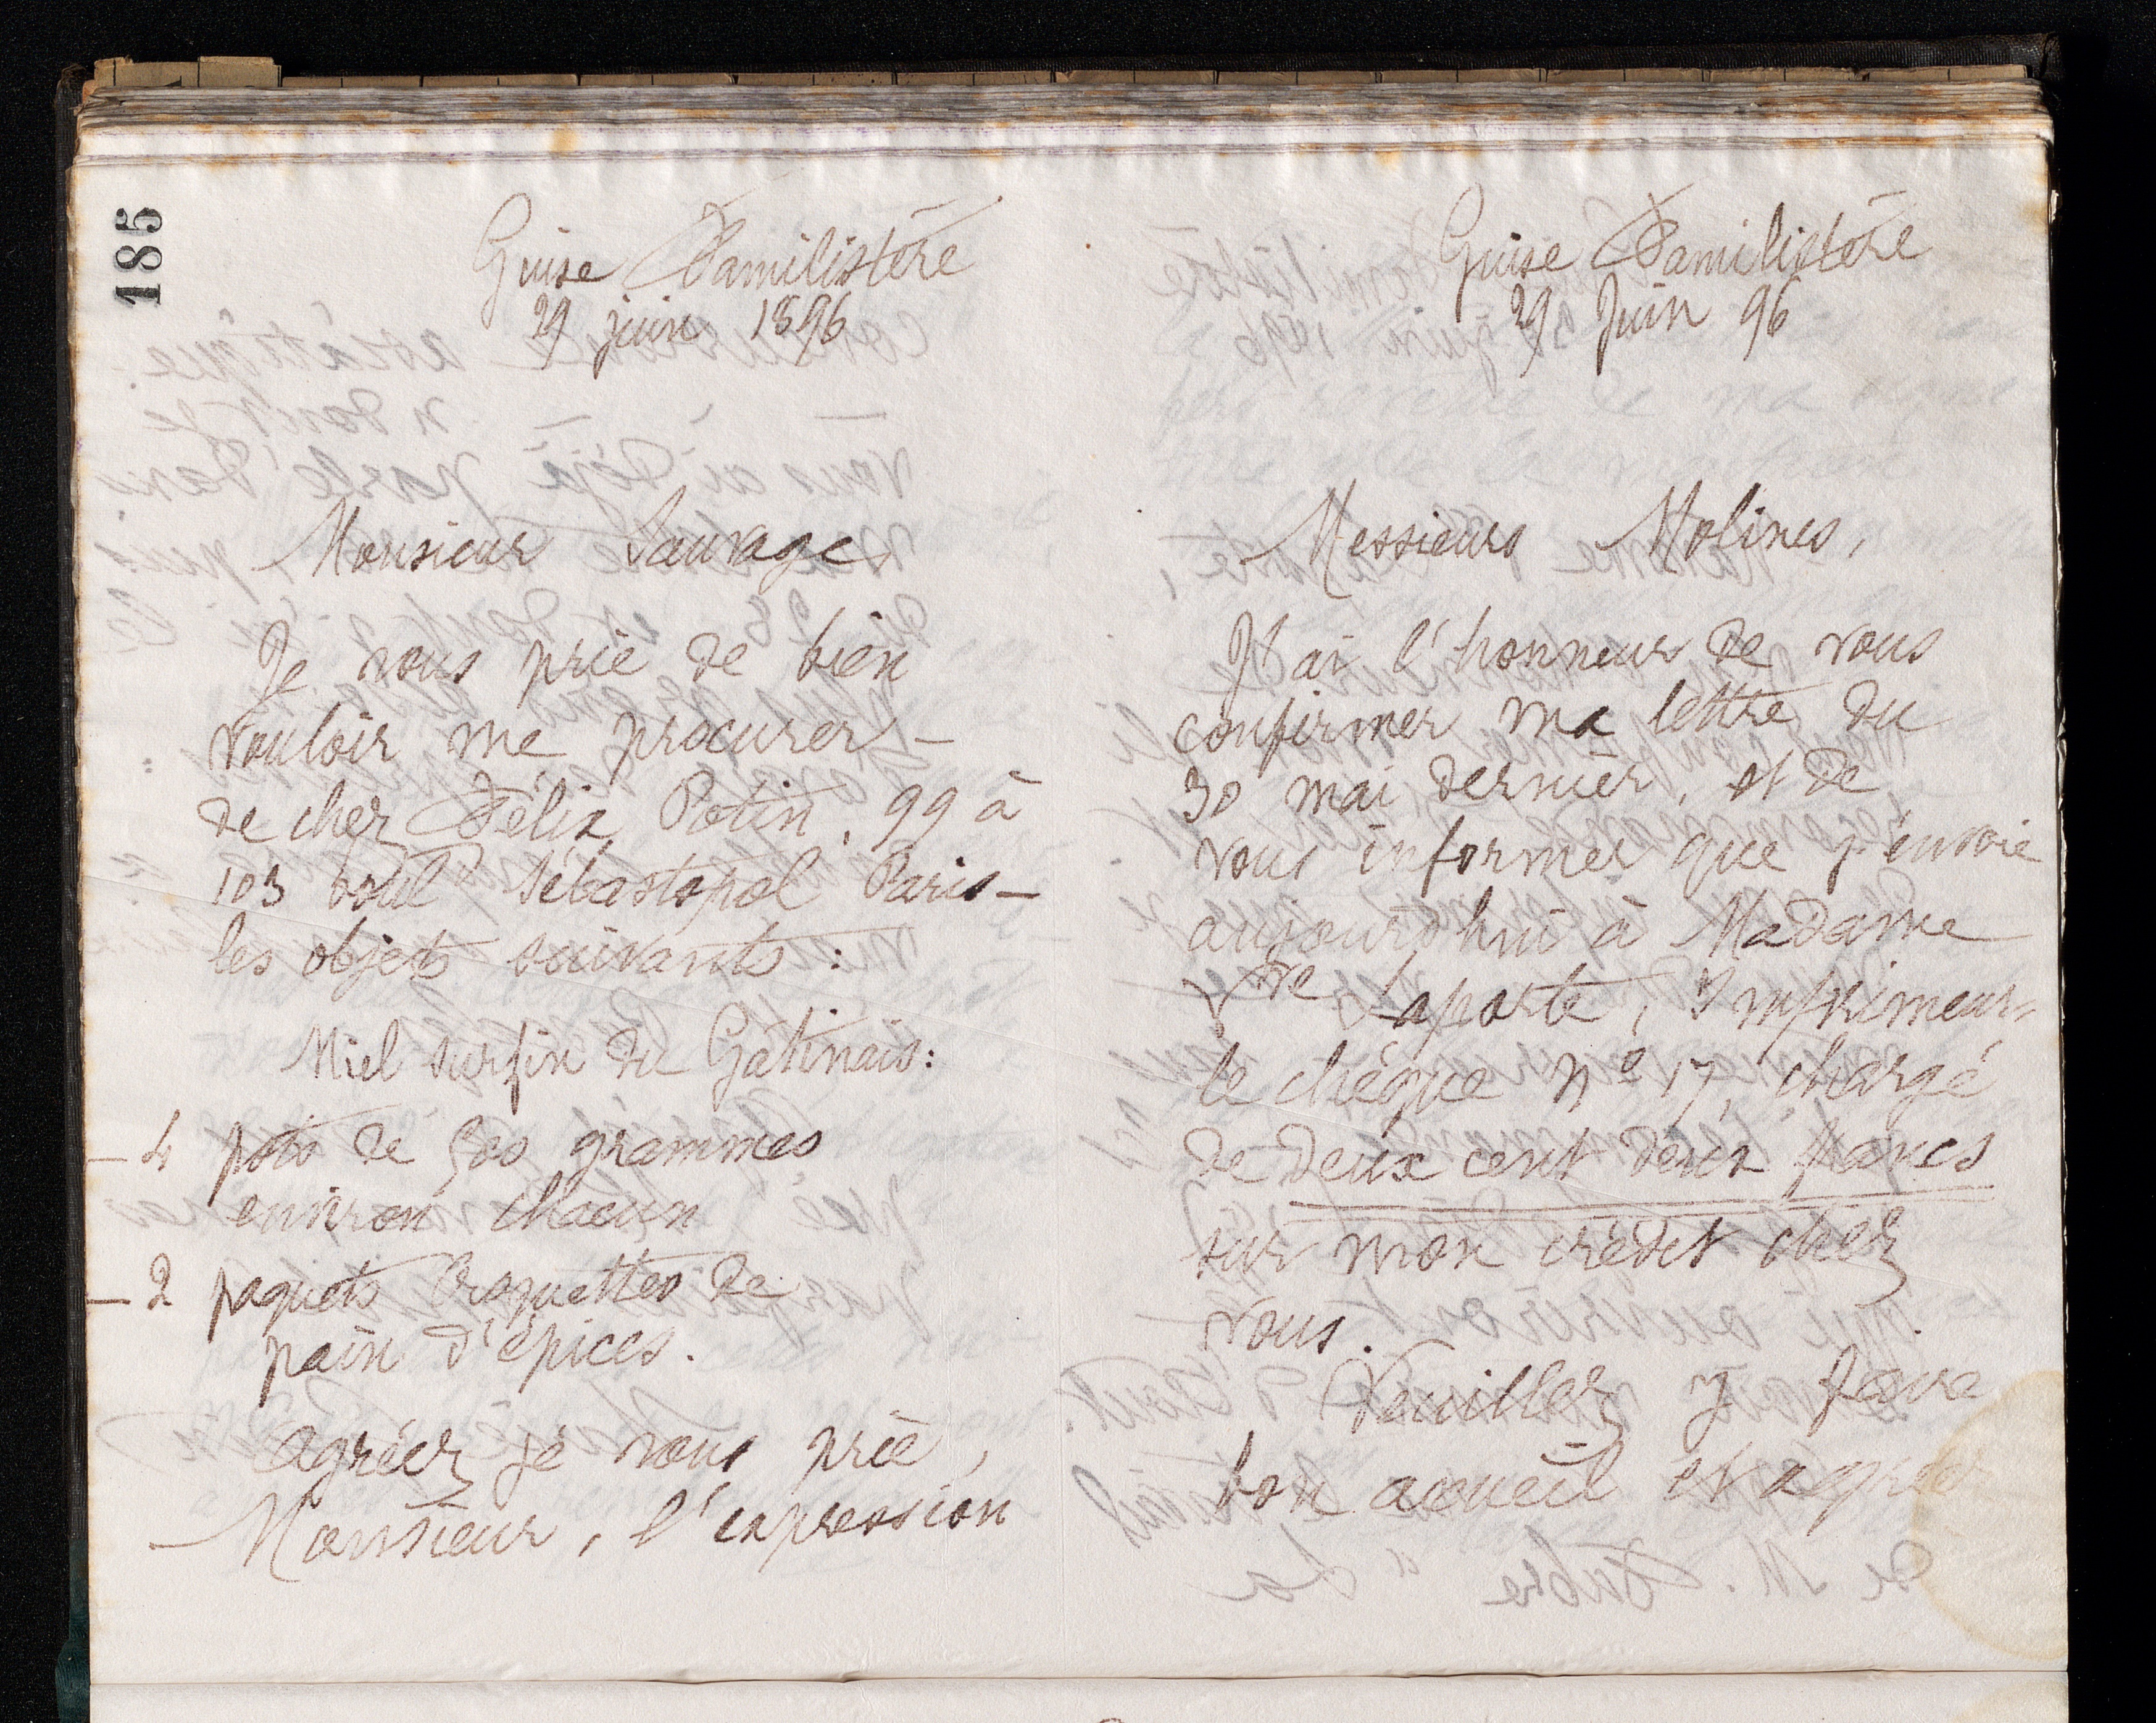 185
Guise Familistère
29 juin 1896
Monsieur Sauvage,
Je vous prie de bien
vouloir me procurer —
de chez Félix Potin, 99 à
103 boul<sup>d</sup> Sébastopol Paris —
les objets suivants :
Miel surfin du Gâtinais :
— 4 pots de 500 grammes
environ chacun
— 2 paquets Croquettes de
pain d'épices.
Agréez je vous prie,
Monsieur, l'expression
Guise Familistère
29 Juin 96
Messieurs Molines,
J'ai l'honneur de vous
confirmer ma lettre du
30 mai dernier, et de
vous informer que j'envoie
aujourd'hui à Madame
Vve Laporte, Imprimeur,
le chèque nº 17, chargé
de deux cent deux francs
sur mon crédit chez
vous.
Veuillez y faire
bon accueil et agréer